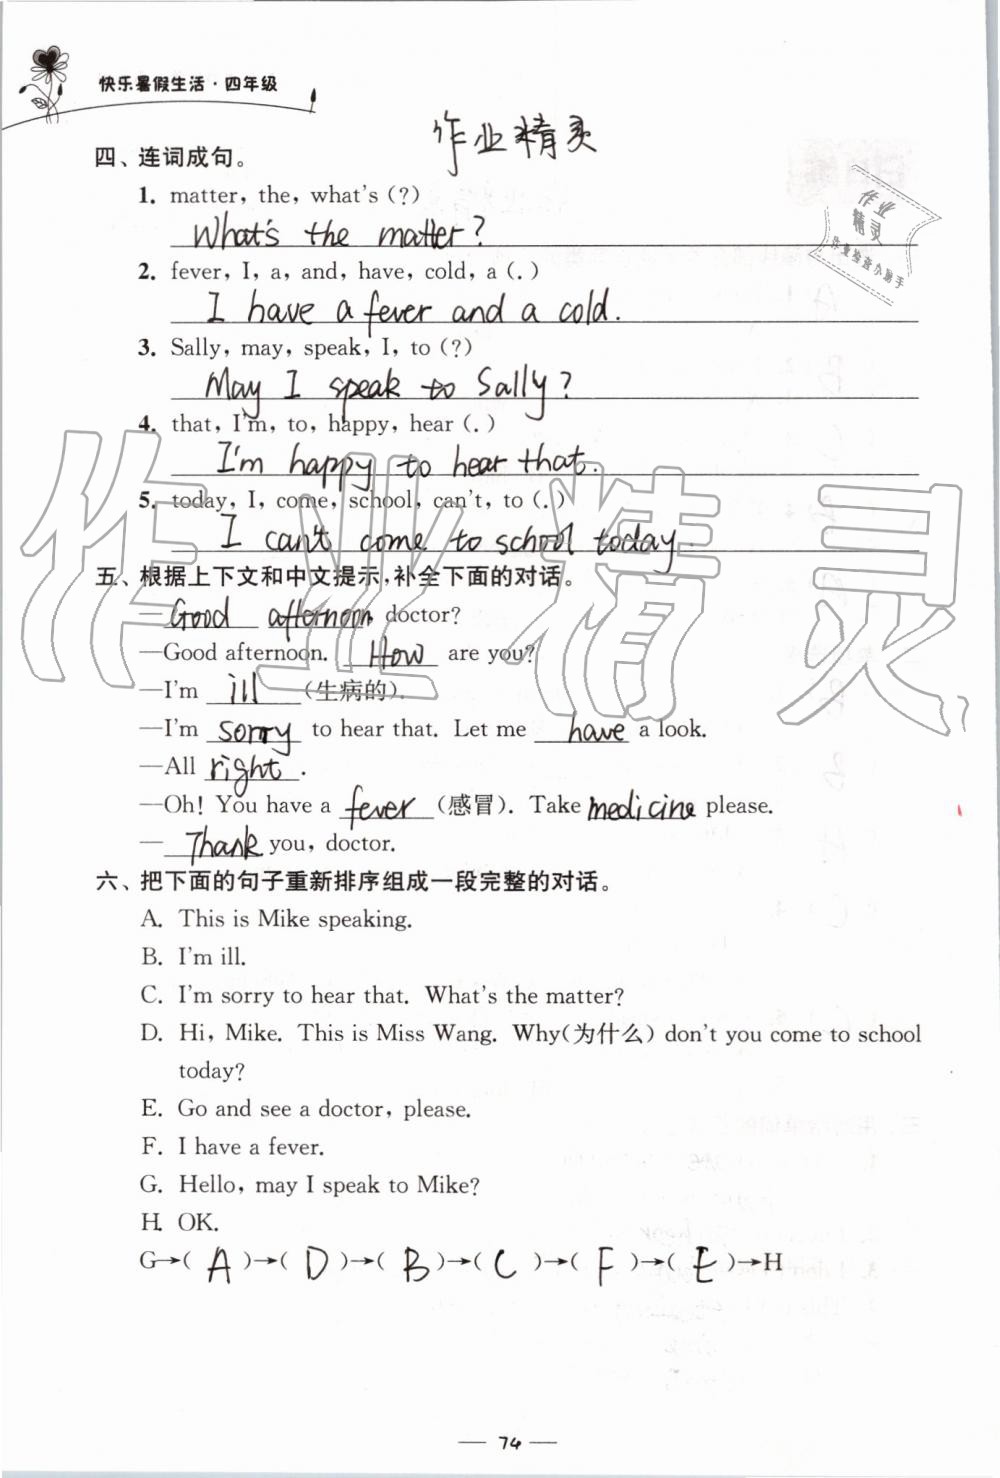 快乐暑假生活·四年级
作业精灵
四、连词成句。
作业
精灵
作业检查小助手
1. matter, the, what's (?)
What's the matter?
2. fever, I, a, and, have, cold, a (.)
I have a fever and a cold.
3. Sally, may, speak, I, to (?)
May I speak to Sally?
4. that, I'm, to, happy, hear (.)
I'm happy to hear that.
5. today, I, come, school, can't, to (.)
I can't come to school today.
作业精灵
五、根据上下文和中文提示,补全下面的对话。
—Good afternoon, doctor?
—Good afternoon. How are you?
—I'm ill (生病的).
—I'm sorry to hear that. Let me have a look.
—All right.
—Oh! You have a fever (感冒). Take medicine please.
—Thank you, doctor.
六、把下面的句子重新排序组成一段完整的对话。
A. This is Mike speaking.
B. I'm ill.
C. I'm sorry to hear that. What's the matter?
D. Hi, Mike. This is Miss Wang. Why(为什么) don't you come to school
today?
E. Go and see a doctor, please.
F. I have a fever.
G. Hello, may I speak to Mike?
H. OK.
G→( A )→( D )→( B )→( C )→( F )→( E )→H
— 74 —